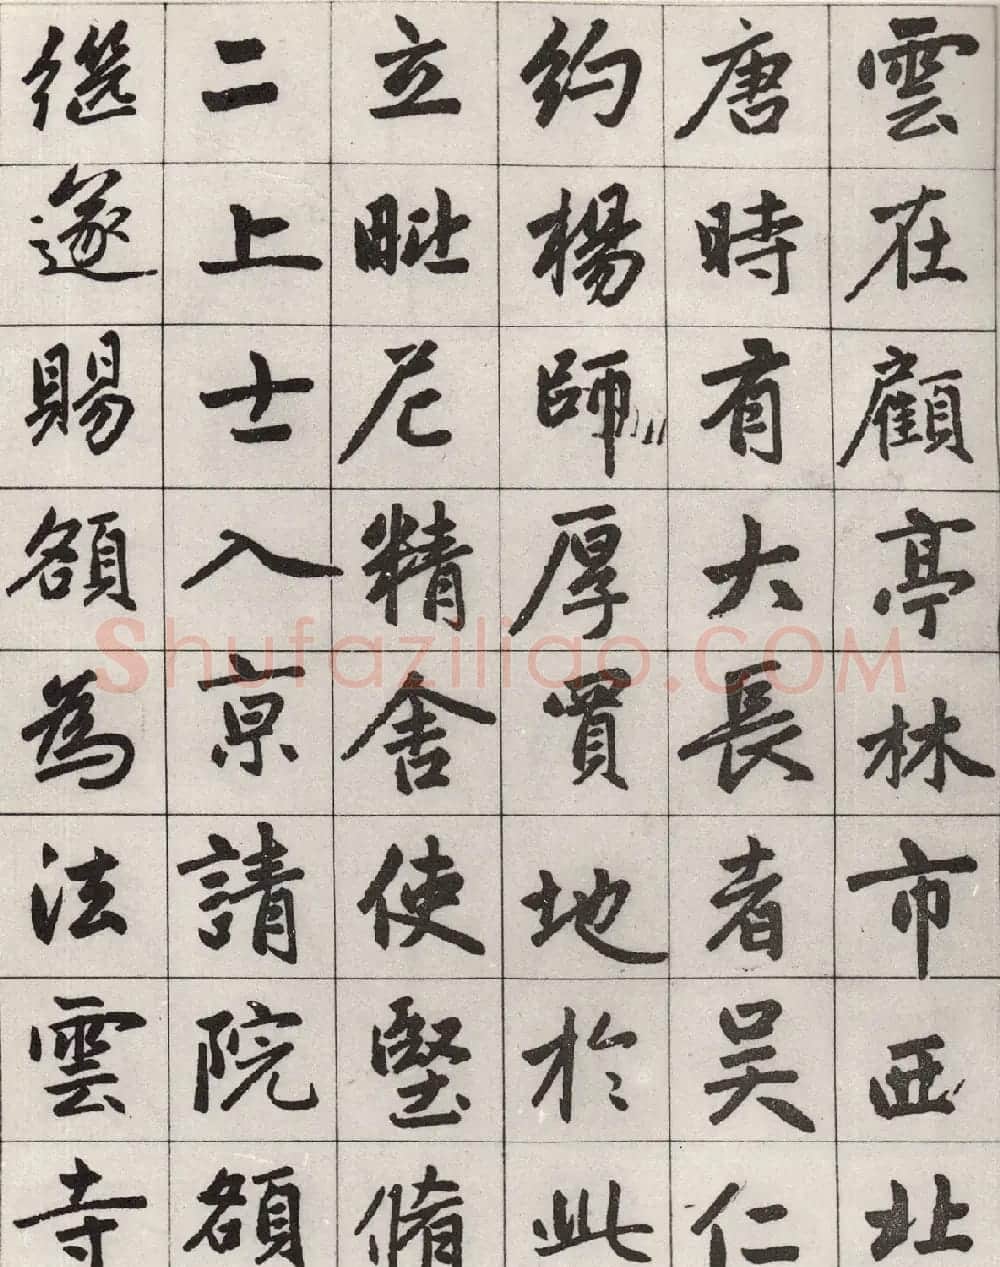 雲在顧亭林市西北
唐時有大長者吳仁
約楊師厚買地於此
立毗尼精舍使堅脩
二上士入京請院額
遂賜額為法雲寺
Shufaziliao.COM